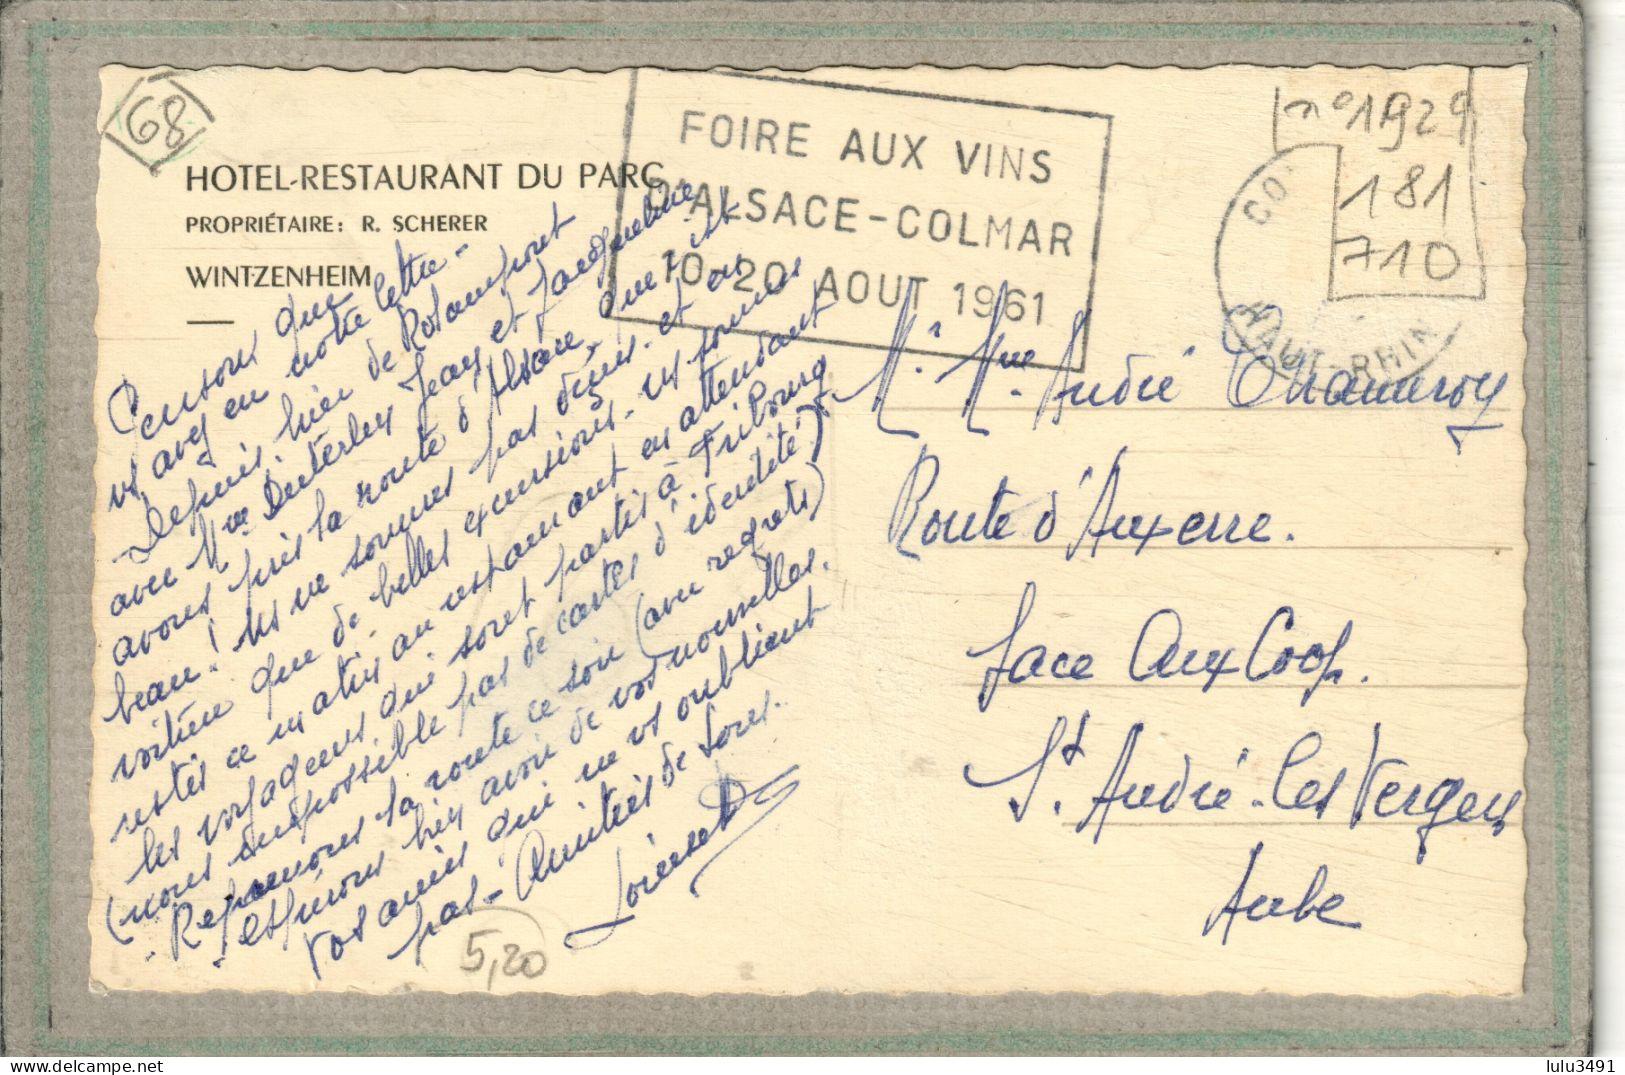 68
HOTEL-RESTAURANT DU PARC
PROPRIÉTAIRE: R. SCHERER
WINTZENHEIM
FOIRE AUX VINS
D'ALSACE-COLMAR
10-20 AOUT 1961
CO
HAUT-RHIN
n° 1929
181
710
Pensons que
vs avez eu notre lettre -
Depuis hier de
avec Mme Jean et Jacqueline
avons pris la route d'Alsace, que c'est
beau! Ns ne sommes pas déçus et en
voiture que de belles excursions. ns sommes
restés ce matin au restaurant en attendant
les voyageurs qui sont partis à Fribourg
(nous impossible pas de cartes d'identité)
Reprenons la route ce soir (avec regrets)
espérons bien avoir de vos nouvelles.
Vos amis qui ne vs oublient
pas - Amitiés de Tous.
5,20
Mr. Mme André Chameroy
Route d'Auxerre.
face Aux Coop.
St. André-les Vergers
Aube
lulu3491